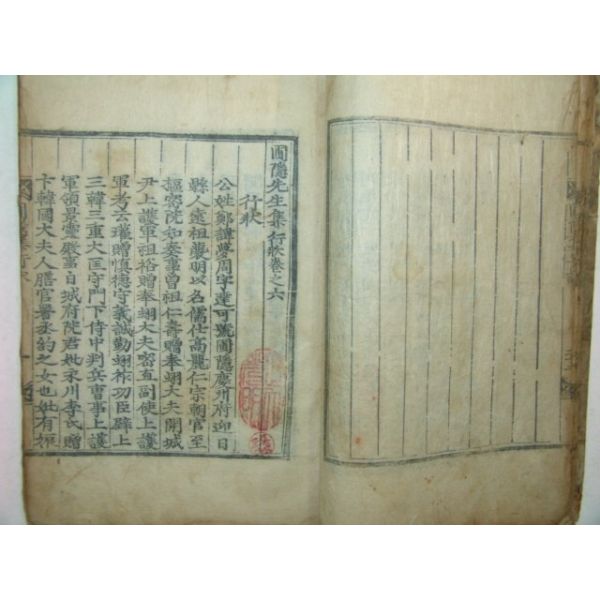 圃隱先生集行狀卷之六
行狀
公姓鄭諱夢周字達可號圃隱慶州府迎日
縣人遠祖襲明以名儒仕高麗仁宗朝官至
樞密院知奏事曾祖仁壽贈奉翊大夫開城
尹上護軍祖裕贈奉翊大夫密直副使上護
軍考云瓘贈慎德守義誠勤翊祚功臣壁上
三韓三重大匡守門下侍中判兵曹事上護
軍領景靈殿事日城府院君妣永川李氏贈
卞韓國大夫人膳官署丞約之女也妣有娠